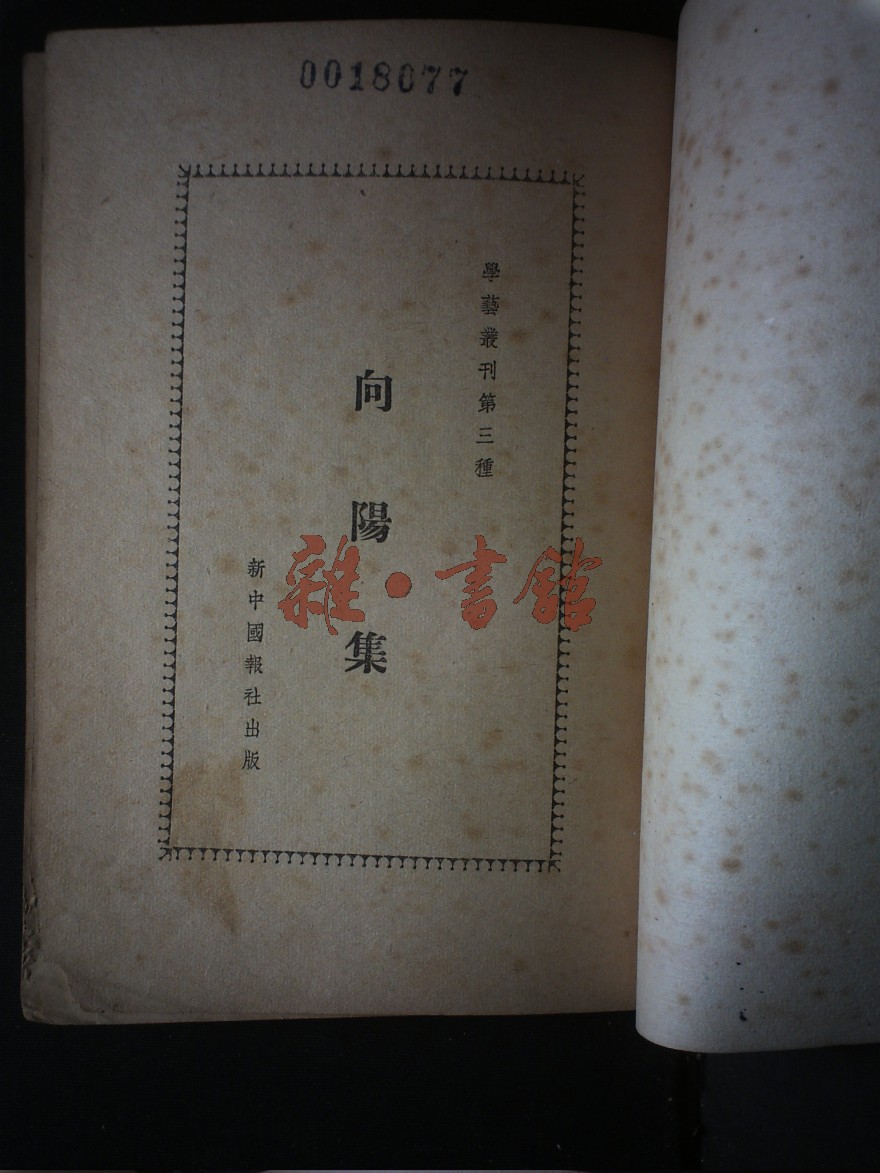 0018077
學藝叢刊第三種
向陽集
新中國報社出版
雜·書館